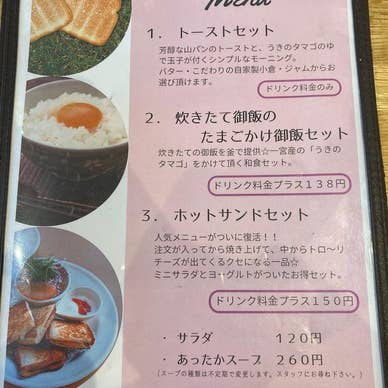 Menu
1．トーストセット
芳醇な山パンのトーストと、うきのタマゴのゆ
で玉子が付くシンプルなモーニング。
バター・こだわりの自家製小倉・ジャムからお
選び頂けます。
ドリンク料金のみ
2．炊きたて御飯の
たまごかけ御飯セット
炊きたての御飯を釜で提供☆一宮産の「うきの
タマゴ」をかけて頂く和食セット。
ドリンク料金プラス138円
3．ホットサンドセット
人気メニューがついに復活！！
注文が入ってから焼き上げて、中からトロ〜リ
チーズが出てくるクセになる一品☆
ミニサラダとヨーグルトがついたお得セット。
ドリンク料金プラス150円
・サラダ 120円
・あったかスープ 260円
（スープの種類は不定期で変更します。スタッフにお尋ね下さい。）